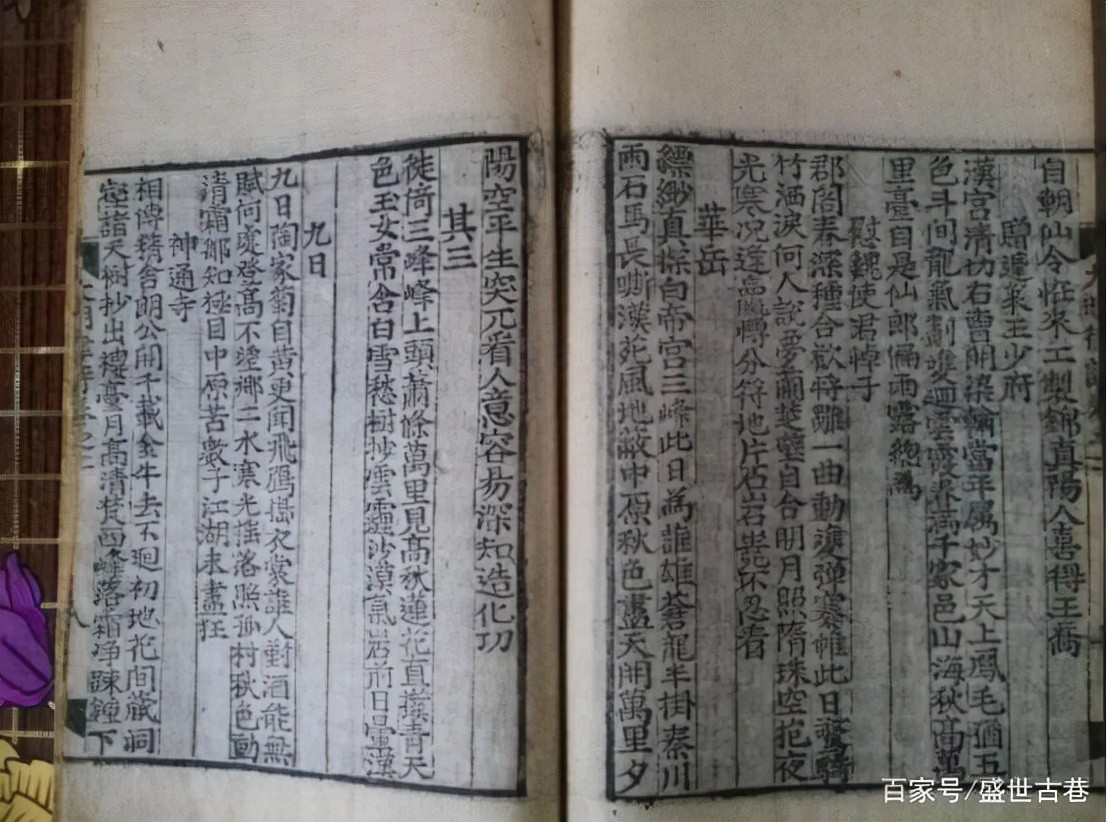 自朝仙令恠來工製錦真陽人喜得王喬
贈蓬萊王少府
漢宮清切右曹朋染翰當年屬妙才天上鳳毛猶五
色斗間龍氣劃雙迴雲霞界滿千家邑山海秋高萬
里臺自是仙郎偏雨露總為
慰魏使君悼子
郡閣春深種合歡將雛一曲動凄彈褰帷此日驚騎
竹洒淚何人說夢蘭楚璧自合明月照隋珠空抱夜
光寒況逢分符地片石 忍看
華岳
縹緲真探白帝宮三峰此日為誰雄蒼龍半掛秦川
雨石馬長嘶漢苑風地敞中原秋色盡天開萬里夕
陽空平生突兀看人意容易深知造化功
其三
徙倚三峰峰上頭蕭條萬里見高秋蓮花直擬青天
色玉女常含白雪愁樹抄雲霾沙漠氣岩前日暈漢
九日
九日陶家菊自黃更聞飛鴈搗衣裳誰人對酒能無
賦何處登高不望鄉二水寒光搖落照孤村秋色動
清霜那知極目中原苦數子江湖未盡狂
神通寺
相傳精舍朗公開千載金牛去不迴初地花間藏洞
壑諸天樹抄出樓臺月高清梵西峰落霜淨踈鐘下
八
百家号/盛世古巷